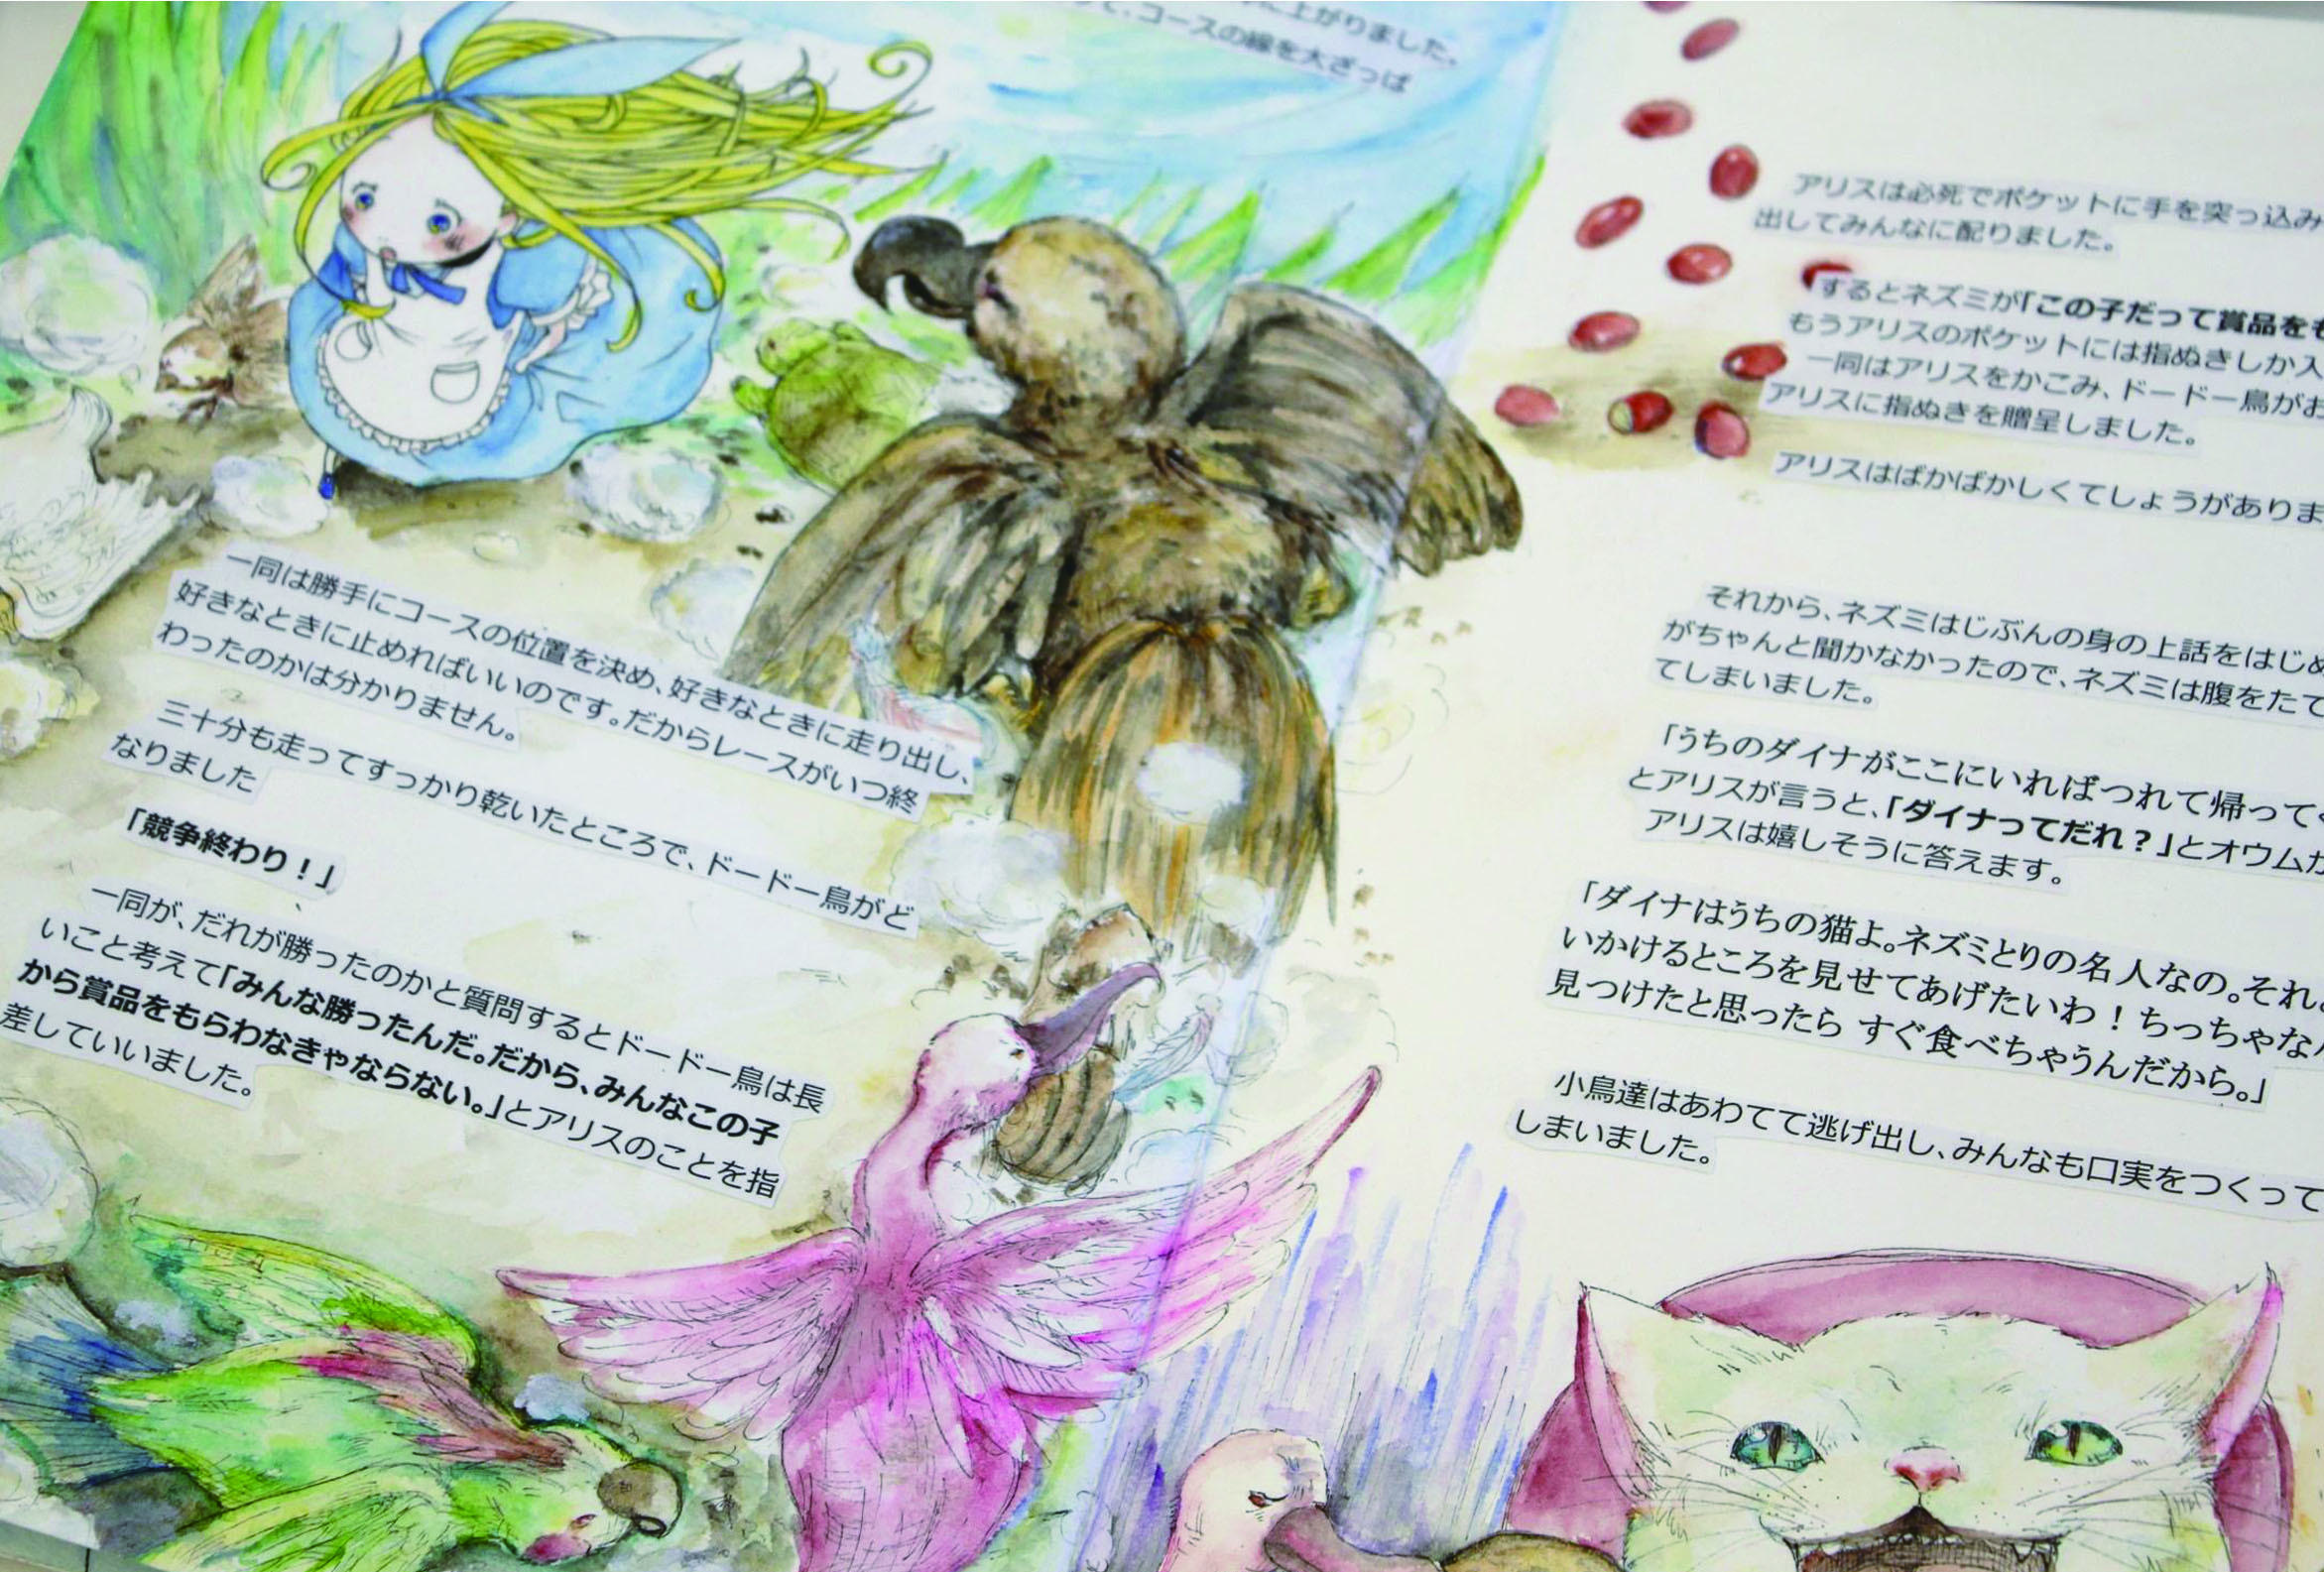 に上がりました。
て、コースの線を大ざっぱ
一同は勝手にコースの位置を決め、好きなときに走り出し、
好きなときに止めればいいのです。だからレースがいつ終
わったのかは分かりません。
三十分も走ってすっかり乾いたところで、ドードー鳥がど
なりました
「競争終わり！」
一同が、だれが勝ったのかと質問するとドードー鳥は長
いこと考えて「みんな勝ったんだ。だから、みんなこの子
から賞品をもらわなきゃならない。」とアリスのことを指
差していいました。
アリスは必死でポケットに手を突っ込み
出してみんなに配りました。
するとネズミが「この子だって賞品を
もうアリスのポケットには指ぬきしか入
一同はアリスをかこみ、ドードー鳥がお
アリスに指ぬきを贈呈しました。
アリスはばかばかしくてしょうがありま
それから、ネズミはじぶんの身の上話をはじめ
がちゃんと聞かなかったので、ネズミは腹をたて
てしまいました。
「うちのダイナがここにいればつれて帰って
とアリスが言うと、「ダイナってだれ？」とオウムが
アリスは嬉しそうに答えます。
「ダイナはうちの猫よ。ネズミとりの名人なの。それ
いかけるところを見せてあげたいわ！ちっちゃな
見つけたと思ったら すぐ食べちゃうんだから。」
小鳥達はあわてて逃げ出し、みんなも口実をつくって
しまいました。